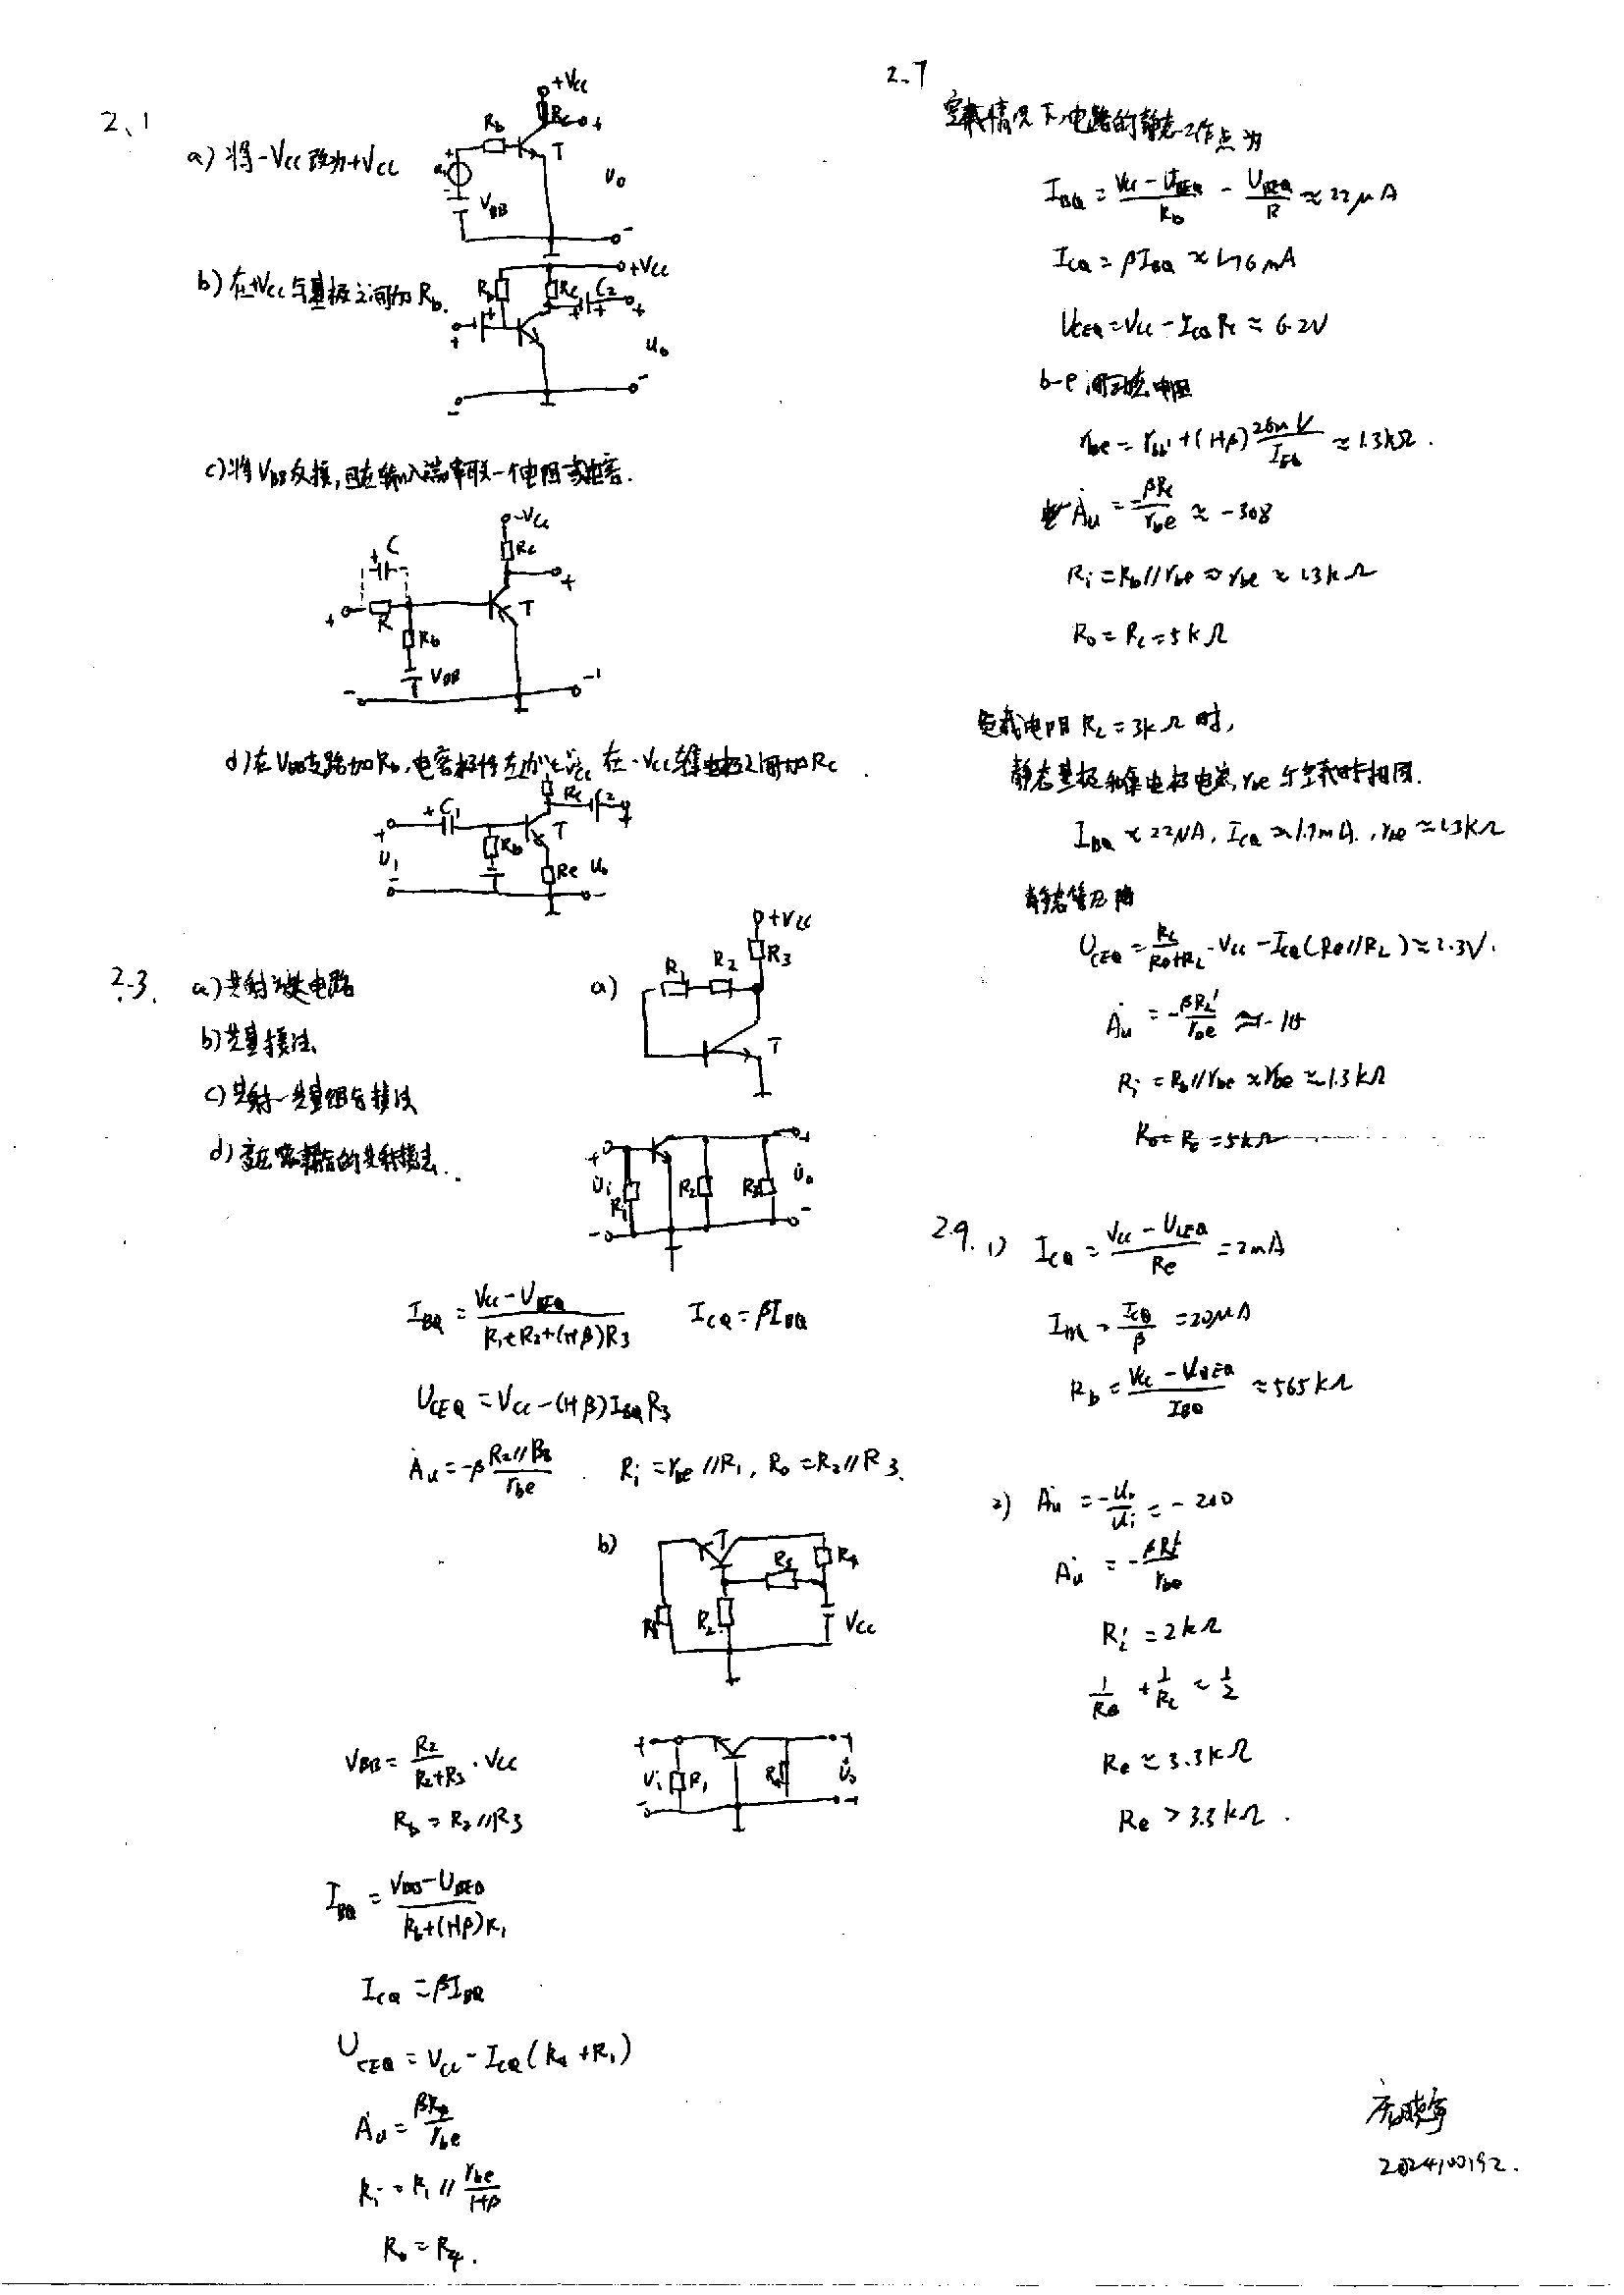 2、1
a) 将-Vcc改为+Vcc
+Vcc
Rb
Rc
T
VBB
U0
b) 在+Vcc与基极之间加Rb.
+Vcc
Rb
Rc
C2
U0
c) 将VBB反接,且在输入端串联一个电阻或电容.
-Vcc
Rc
C
R
T
Rb
VBB
d) 在VBB支路加Rb,在-Vcc与集电极之间加Rc
Rc
C2
C1
T
Rb
Re
Ui
U0
2.3.
a) 共射放大电路
b) 共基接法
c) 共射-共基组合接法
d) 变压器耦合的共射接法.
a)
+Vcc
R1
R2
R3
T
Ui
R1
R2
R3
U̇o
IBQ = (Vcc-UBEQ)/(R1+R2+(1+β)R3)
ICQ = βIBQ
UCEQ = Vcc-(1+β)IBQR3
Ȧu = -β (R2//R3)/rbe
Ri = rbe//R1, Ro = R2//R3.
b)
T
R3
R4
R1
R2
Vcc
Ui
R1
R4
U̇o
VBB = R2/(R2+R3)·Vcc
Rb = R2//R3
IBQ = (VBB-UBEQ)/(Rb+(1+β)R1)
ICQ = βIBQ
UCEQ = Vcc-ICQ(R4+R1)
Ȧu = βR4/rbe
Ri = R1//rbe/(1+β)
Ro = R4.
2-7
空载情况下,电路的静态工作点为
IBQ = (Vcc-UBEQ)/Rb - UBEQ/R ≈ 22μA
ICQ = βIBQ ≈ 1.76mA
UCEQ = Vcc-ICQRc ≈ 6.2V
b-e间动态电阻
rbe = rbb'+(1+β)26mV/IEQ ≈ 1.3kΩ.
Ȧu = -βRc/rbe ≈ -308
Ri = Rb//rbe ≈ rbe ≈ 1.3kΩ
Ro = Rc = 5kΩ
负载电阻RL=3kΩ时,
静态基极和集电极电流,rbe与空载时相同.
IBQ ≈ 22μA, ICQ ≈ 1.7mA., rbe ≈ 1.3kΩ
UCEQ = RL/(Rc+RL)·Vcc-ICQ(Rc//RL) ≈ 2.3V.
Ȧu = -βRL'/rbe
Ri = Rb//rbe ≈ rbe ≈ 1.3kΩ
Ro = Rc = 5kΩ
2.9. 1) ICQ = (Vcc-UCEQ)/Rc = 2mA
IBQ = ICQ/β = 20μA
Rb = (Vcc-UBEQ)/IBQ ≈ 565kΩ
2) Ȧu = -Uo/Ui = -200
Ȧu = -βRL'/rbe
RL' = 2kΩ
1/Rc + 1/RL = 1/2
Re ≈ 3.3kΩ
Re > 3.3kΩ.